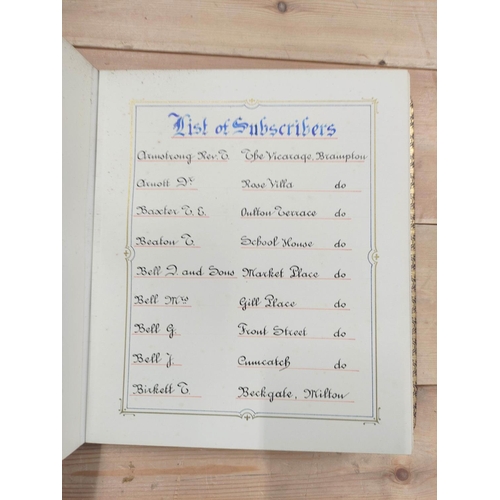 List of Subscribers
Armstrong Rev. T. The Vicarage, Brampton
Arnott Dr Rose Villa do
Baxter T. E. Oulton Terrace do
Beaton T. School House do
Bell D. and Sons Market Place do
Bell Mrs Gill Place do
Bell G. Front Street do
Bell J. Cumcatch do
Birkett T. Beckgate, Milton